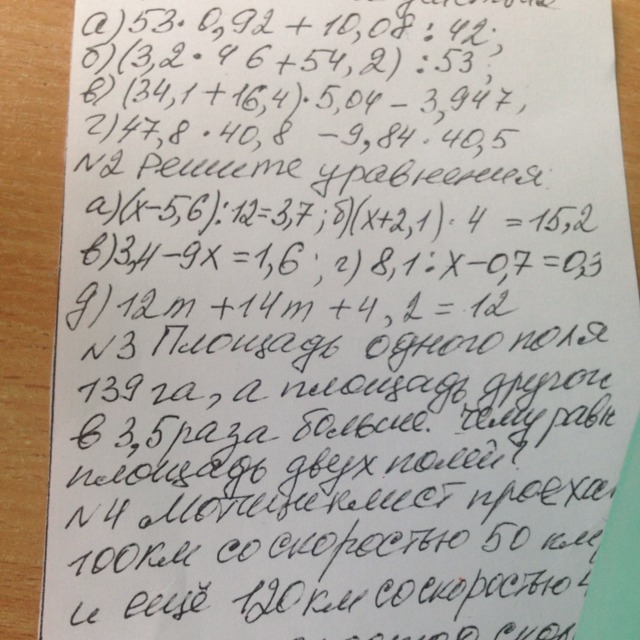 действия
а) 53·0,92 + 10,08 : 42;
б) (3,2·46+54,2) : 53;
в) (34,1+16,4)·5,04 - 3,947,
г) 47,8·40,8 -9,84·40,5
N2 Решите уравнения:
а)(х-5,6):12=3,7; б)(х+2,1)·4 =15,2
в)3,4-9х=1,6; г) 8,1:х-0,7=0,3
д) 12m +14m +4,2 = 12
N3 Площадь одного поля
139 га, а площадь другого
в 3,5 раза больше. Чему равн
площадь двух полей?
N4 Мотоциклист проехал
100км со скоростью 50 км/
и ещё 120км со скоростью 4